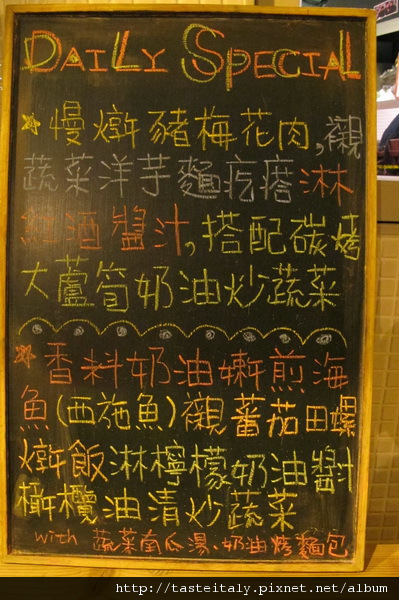 DAILY SPECIAL
慢燉豬梅花肉,襯
蔬菜洋芋麵疙瘩淋
紅酒醬汁,搭配碳烤
大蘆筍奶油炒蔬菜
香料奶油嫩煎海
魚(西施魚)襯蕃茄田螺
燉飯淋檸檬奶油醬汁
橄欖油清炒蔬菜
with 蔬菜南瓜湯、奶油烤麵包
http://tasteitaly.pixnet.net/album